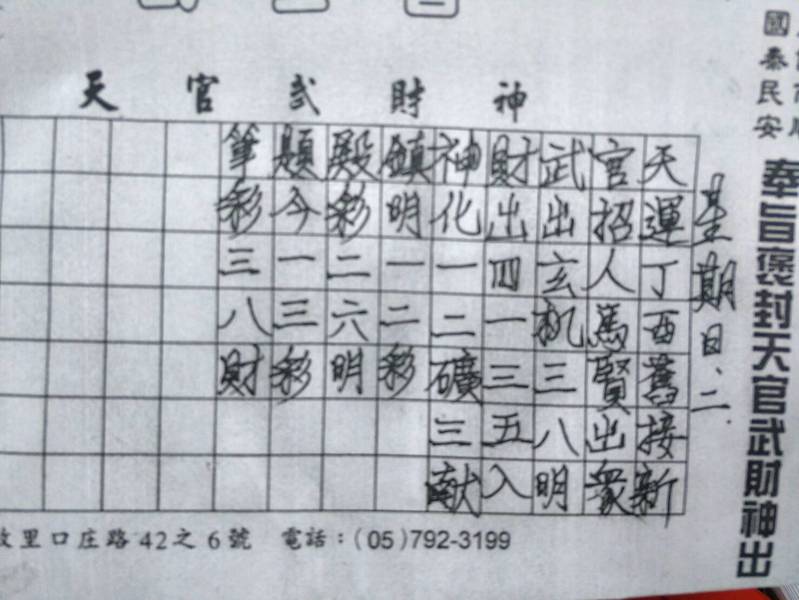 國泰民安
奉旨褒封天官武財神出
星期日、二
天官武財神
天運丁酉舊接新
官招人馬賢出眾
武出玄机三八明
財出四一三五入
神化一二礦三献
鎮明一二彩
殿彩二六明
題今一三彩
筆彩三八財
里口庄路42之6號 電話：(05)792-3199